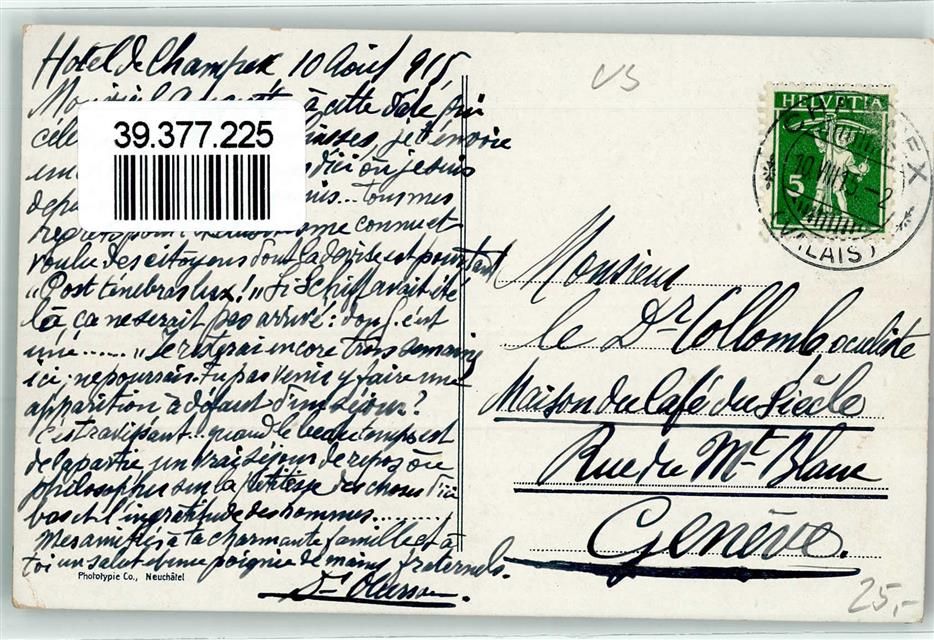 Hotel de Champex 10 Août 915
à cette date, qui
je t'envoie
d'ici où je suis
tous mes
connu et
voulu des citoyens dont la devise est pourtant
"Post tenebras lux!" Si Schiff avait été
là ça ne serait pas arrivé: c'est
une...... "Je resterai encore trois semaines
ici; ne pourrais-tu pas venir y faire une
apparition à défaut d'un séjour?
C'est ravissant.. quand le beau temps est
de la partie, un vrai séjour de repos où
philosopher sur la petitesse des choses d'ici
bas et l'ingratitude des hommes..........
Mes amitiés à ta charmante famille et à
toi un salut et une poignée de mains fraternels.
Dr
Phototypie Co., Neuchâtel
39.377.225
VS
HELVETIA
5
CHAMPEX
10.VIII.15.-2
(VALAIS)
Monsieur
le Dr Collomb oculiste
Maison du Café du Siècle
Rue du Mt Blanc
Genève.
25,-